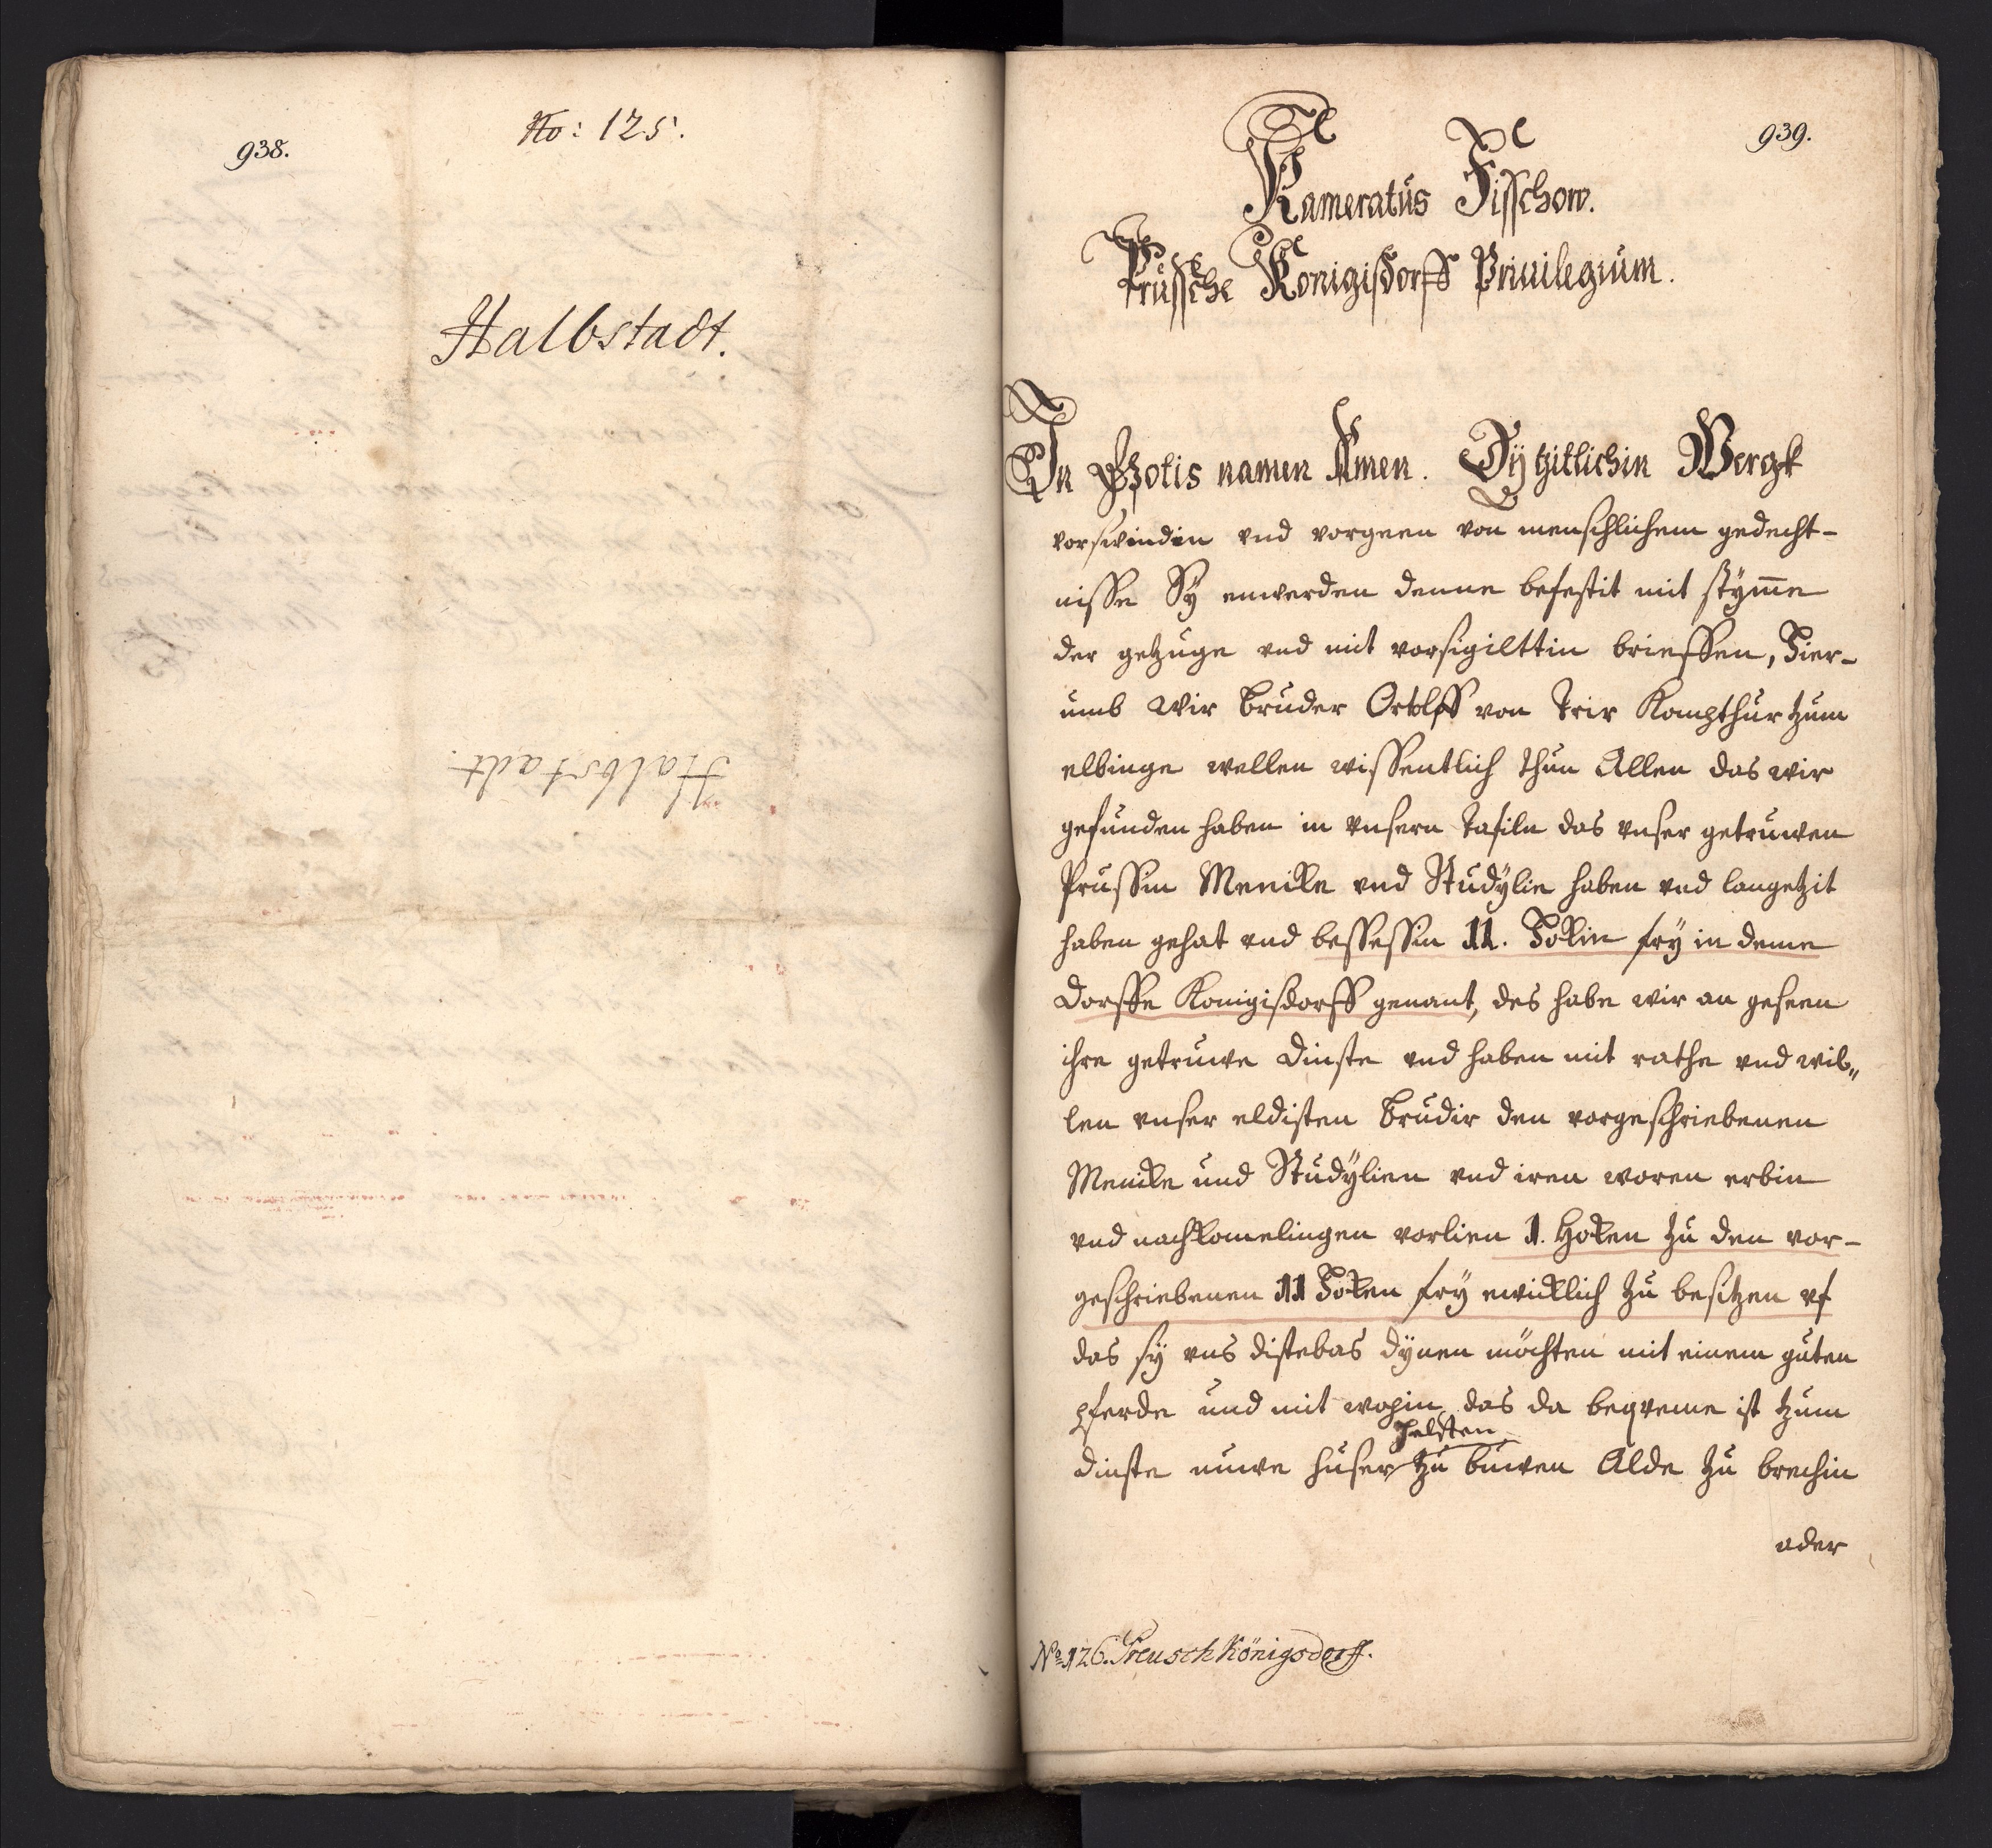 938.
No: 125.
Halbstadt.
Halbstadt.
939.
Kameratus Fisschow.
Prussche Konigisdorff Priuilegium.
In Gotis namen Amen. Dÿ tzitlichin Wergk
vorswindin vnd vorgeen von menschlichem gedecht-
nisse Sÿ enwerden denne befestit mit stÿm̄e
der getzuge vnd mit vorsigilttin brieffen, Hier-
umb Wir Bruder Ortolff von Trir Kompthur tzum
elbinge wellen wissentlich thun Allen das wir
gefunden haben in vnsern tafiln das vnser getruwen
Prussin Menike vnd Studÿlie haben vnd langetzit
haben gehat vnd bessessin 11. Hokin frÿ in deme
Dorffe Konigisdorff genant, des habe wir an geseen
ihre getruwe Dinste vnd haben mit rathe vnd wil„
len vnser eldisten Brudir den vorgeschriebenen
Menike und Studÿlien vnd iren woren erbin
vnd nachkomelingen vorlien 1. Hoken zu den vor-
geschriebenen 11 Hoken frÿ ewicklich zu besitzen vf
das sÿ vns distebas dÿnen möchten mit einem guten
pferde und mit wopin das da beqveme ist tzum
helffen
dinste nuwe huser zu buwen Alde zu brechin
ader
No 126. Preusch Königsdorff.